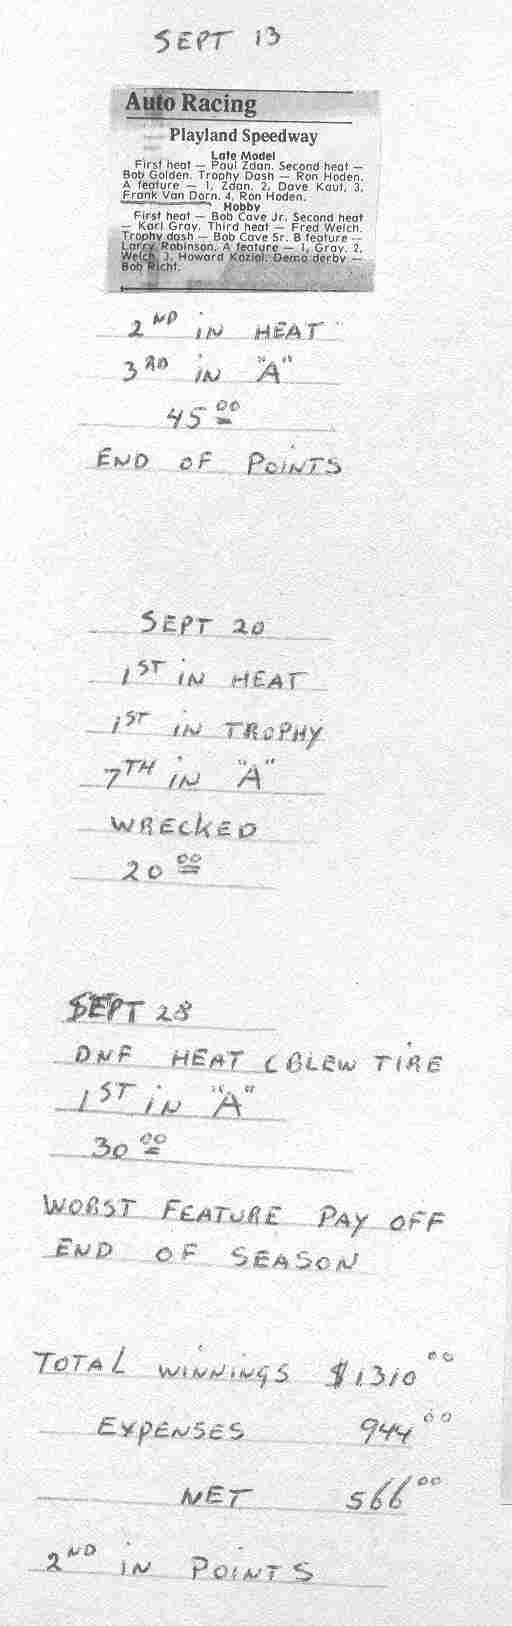 SEPT 13
Auto Racing
Playland Speedway
Late Model
First heat — Paul Zdan. Second heat —
Bob Golden. Trophy Dash — Ron Hoden.
A feature — 1, Zdan. 2, Dave Kaut, 3,
Frank Van Dorn. 4, Ron Hoden.
Hobby
First heat — Bob Cave Jr. Second heat
— Karl Gray. Third heat — Fred Welch.
Trophy dash — Bob Cave Sr. B feature —
Larry Robinson. A feature — 1, Gray. 2,
Welch. 3, Howard Koziol. Demo derby —
Bob Richt.
2ND IN HEAT
3RD IN "A"
45 00
END OF POINTS
SEPT 20
1ST IN HEAT
1ST IN TROPHY
7TH IN "A"
WRECKED
20 00
SEPT 28
DNF HEAT (BLEW TIRE
1ST IN "A"
30 00
WORST FEATURE PAY OFF
END OF SEASON
TOTAL WINNINGS $1310 00
EXPENSES 944 00
NET 566 00
2ND IN POINTS